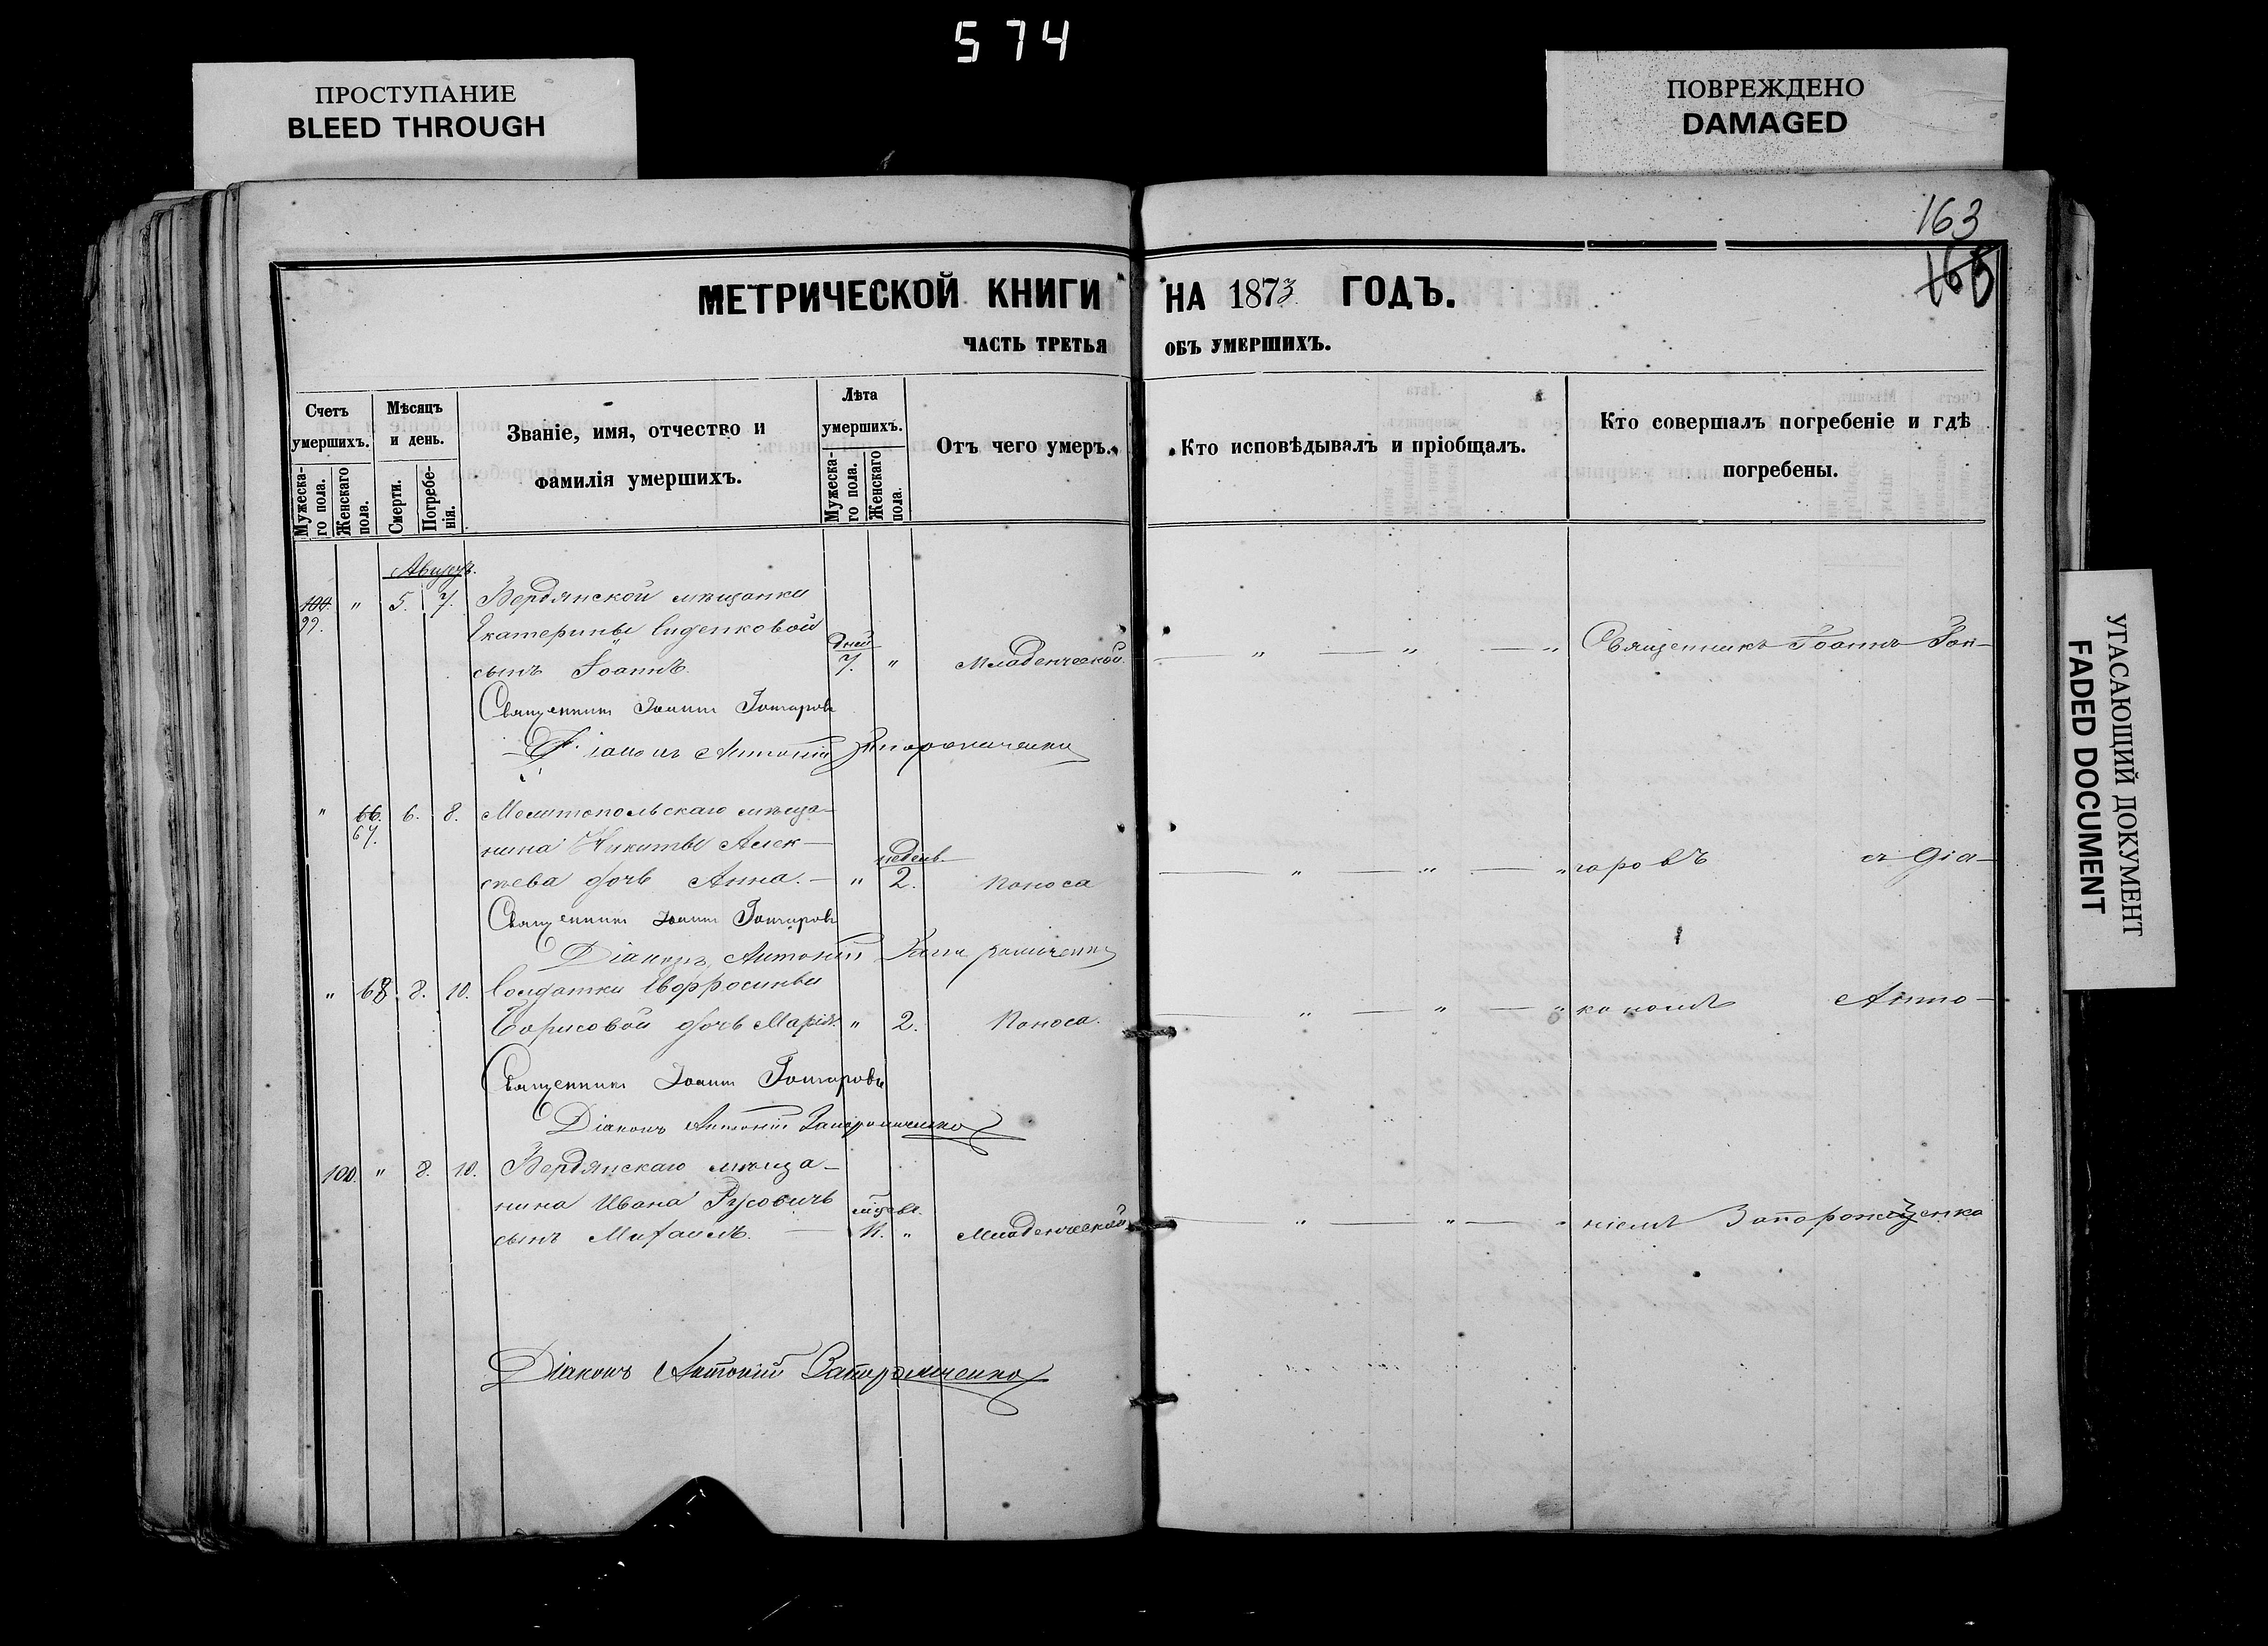 574
ПРОСТУПАНИЕ
BLEED THROUGH
ПОВРЕЖДЕНО
DAMAGED
163
165
МЕТРИЧЕСКОЙ КНИГИ НА 1873 ГОДЪ.
ЧАСТЬ ТРЕТЬЯ ОБЪ УМЕРШИХЪ.
Счетъ умершихъ.
Мужеска-го пола.
Женскаго пола.
Мѣсяцъ и день.
Смерти.
Погребе-нія.
Званіе, имя, отчество и фамилія умершихъ.
Лѣта умершихъ.
Мужеска-го пола.
Женскаго пола.
Отъ чего умеръ.
Кто исповѣдывалъ и пріобщалъ.
Кто совершалъ погребеніе и гдѣ погребены.
Августъ.
100. " 5. 7. Бердянской мѣщанки
99. Екатерины Сиденковой
сынъ Іоаннъ. дней 7. " Младенческой. " " " Священникъ Іоаннъ Гон-
Священникъ Іоаннъ Гончаровъ
Діаконъ Антоній Запорожченко
" 66. 6. 8. Мелитопольскаго мѣща-
67. нина Никиты Алек-
сѣева дочь Анна. " недель 2. Поноса " " " чаровъ съ Діа-
Священникъ Іоаннъ Гончаровъ
Діаконъ Антоній Запорожченко
" 68. 8. 10. Солдатки Евфросиньи
Борисовой дочь Марія. " 2. Поноса. " " " кономъ Анто-
Священникъ Іоаннъ Гончаровъ
Діаконъ Антоній Запорожченко
100. " 8. 10. Бердянскаго мѣща-
нина Ивана Русовичъ
сынъ Михаилъ. 11. " Младенческой " " " ніемъ Запорожченко
Діаконъ Антоній Запорожченко
УГАСАЮЩИЙ ДОКУМЕНТ
FADED DOCUMENT